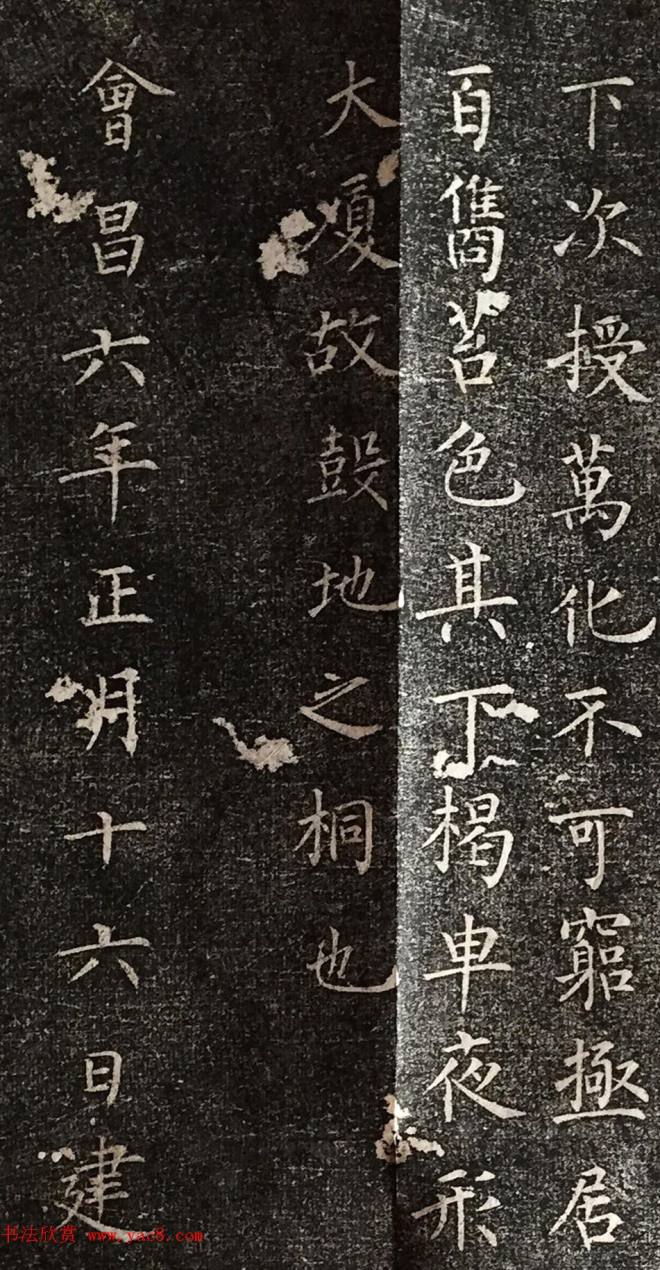 下次授萬化不可窮極居
百舊苔色其下楬車夜形
大夏故鼓地之桐也
會昌六年正月十六日建
书法欣赏 www.yac8.com